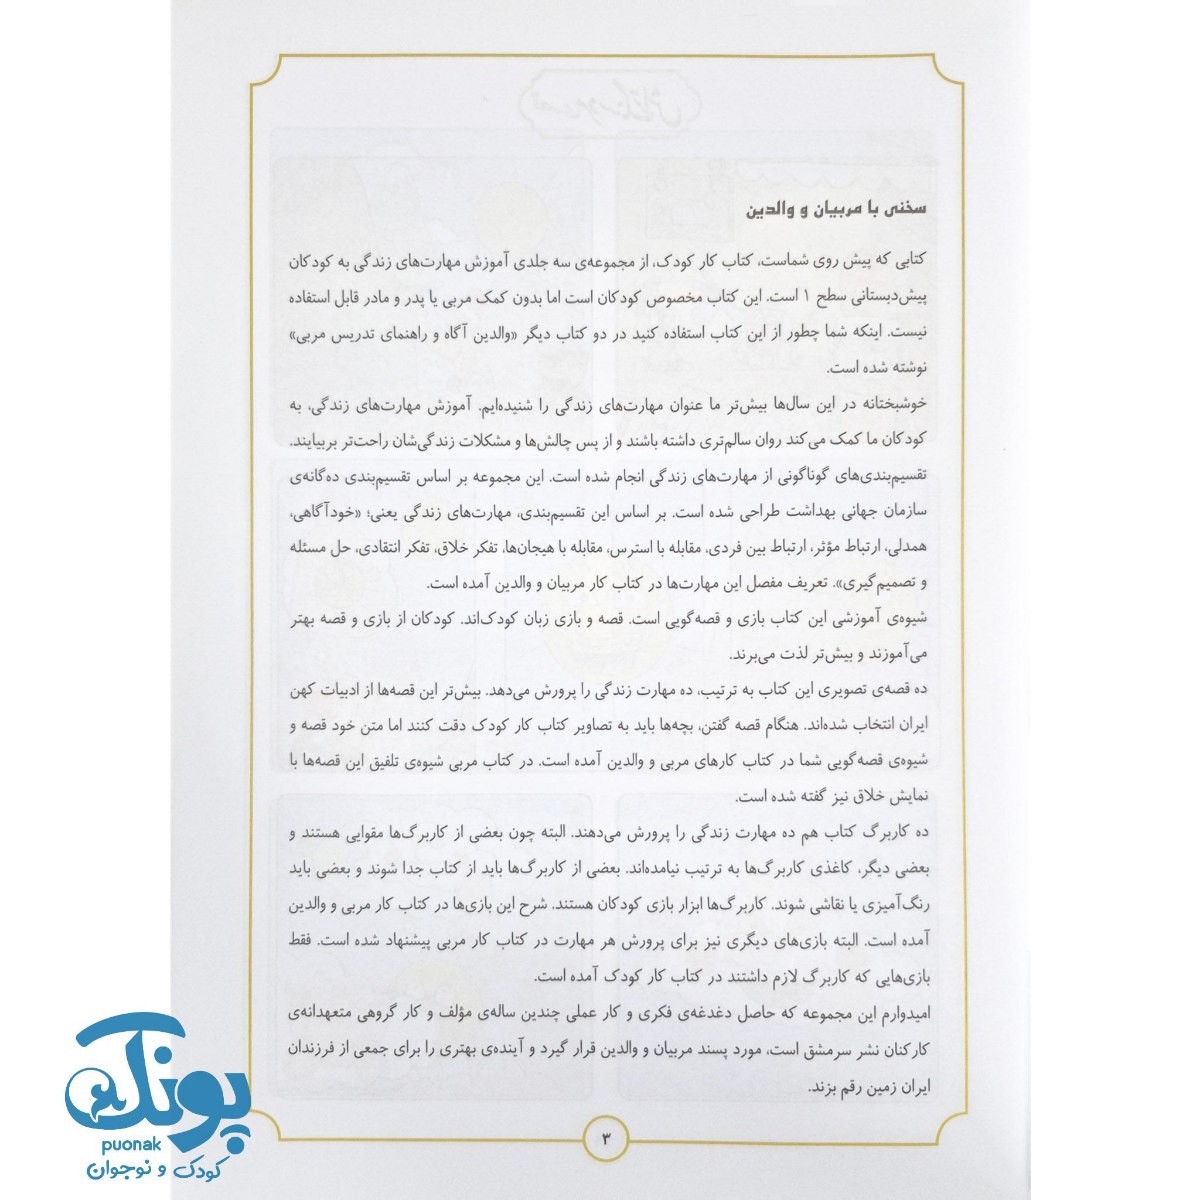 سخنی با مربیان و والدین
کتابی که پیش روی شماست، کتاب کار کودک، از مجموعه‌ی سه جلدی آموزش مهارت‌های زندگی به کودکان
پیش‌دبستانی سطح ۱ است. این کتاب مخصوص کودکان است اما بدون کمک مربی یا پدر و مادر قابل استفاده
نیست. اینکه شما چطور از این کتاب استفاده کنید در دو کتاب دیگر «والدین آگاه و راهنمای تدریس مربی»
نوشته شده است.
خوشبختانه در این سال‌ها بیش‌تر ما عنوان مهارت‌های زندگی را شنیده‌ایم. آموزش مهارت‌های زندگی، به
کودکان ما کمک می‌کند روان سالم‌تری داشته باشند و از پس چالش‌ها و مشکلات زندگی‌شان راحت‌تر بربیایند.
تقسیم‌بندی‌های گوناگونی از مهارت‌های زندگی انجام شده است. این مجموعه بر اساس تقسیم‌بندی ده‌گانه‌ی
سازمان جهانی بهداشت طراحی شده است. بر اساس این تقسیم‌بندی، مهارت‌های زندگی یعنی؛ «خودآگاهی،
همدلی، ارتباط مؤثر، ارتباط بین فردی، مقابله با استرس، مقابله با هیجان‌ها، تفکر خلاق، تفکر انتقادی، حل مسئله
و تصمیم‌گیری». تعریف مفصل این مهارت‌ها در کتاب کار مربیان و والدین آمده است.
شیوه‌ی آموزشی این کتاب بازی و قصه‌گویی است. قصه و بازی زبان کودک‌اند. کودکان از بازی و قصه بهتر
می‌آموزند و بیش‌تر لذت می‌برند.
ده قصه‌ی تصویری این کتاب به ترتیب، ده مهارت زندگی را پرورش می‌دهد. بیش‌تر این قصه‌ها از ادبیات کهن
ایران انتخاب شده‌اند. هنگام قصه گفتن، بچه‌ها باید به تصاویر کتاب کار کودک دقت کنند اما متن خود قصه و
شیوه‌ی قصه‌گویی شما در کتاب کارهای مربی و والدین آمده است. در کتاب مربی شیوه‌ی تلفیق این قصه‌ها با
نمایش خلاق نیز گفته شده است.
ده کاربرگ کتاب هم ده مهارت زندگی را پرورش می‌دهند. البته چون بعضی از کاربرگ‌ها مقوایی هستند و
بعضی دیگر، کاغذی کاربرگ‌ها به ترتیب نیامده‌اند. بعضی از کاربرگ‌ها باید از کتاب جدا شوند و بعضی باید
رنگ‌آمیزی یا نقاشی شوند. کاربرگ‌ها ابزار بازی کودکان هستند. شرح این بازی‌ها در کتاب کار مربی و والدین
آمده است. البته بازی‌های دیگری نیز برای پرورش هر مهارت در کتاب کار مربی پیشنهاد شده است. فقط
بازی‌هایی که کاربرگ لازم داشتند در کتاب کار کودک آمده است.
امیدوارم این مجموعه که حاصل دغدغه‌ی فکری و کار عملی چندین ساله‌ی مؤلف و کار گروهی متعهدانه‌ی
کارکنان نشر سرمشق است، مورد پسند مربیان و والدین قرار گیرد و آینده‌ی بهتری را برای جمعی از فرزندان
ایران زمین رقم بزند.
۳
پونک
puonak
کودک و نوجوان